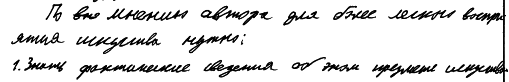 По мнению автора для более легкого воспри
ятия искусства нужно:
1. Знать фактические сведения об этом предмете искусства